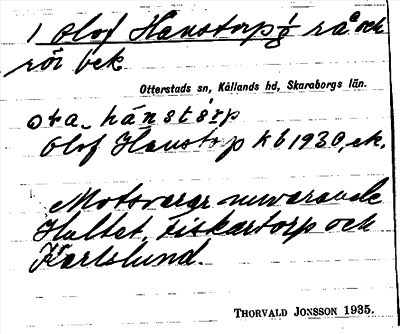 1 Olof Hanstorp 1/8 rå och
rör bek
Otterstads sn, Kållands hd, Skaraborgs län.
hánstórp
Olof Hanstorp kb 1930, ek.
Motsvarar nuvarande
Hultet, Fiskartorp och
Karlslund.
THORVALD JONSSON 1935.